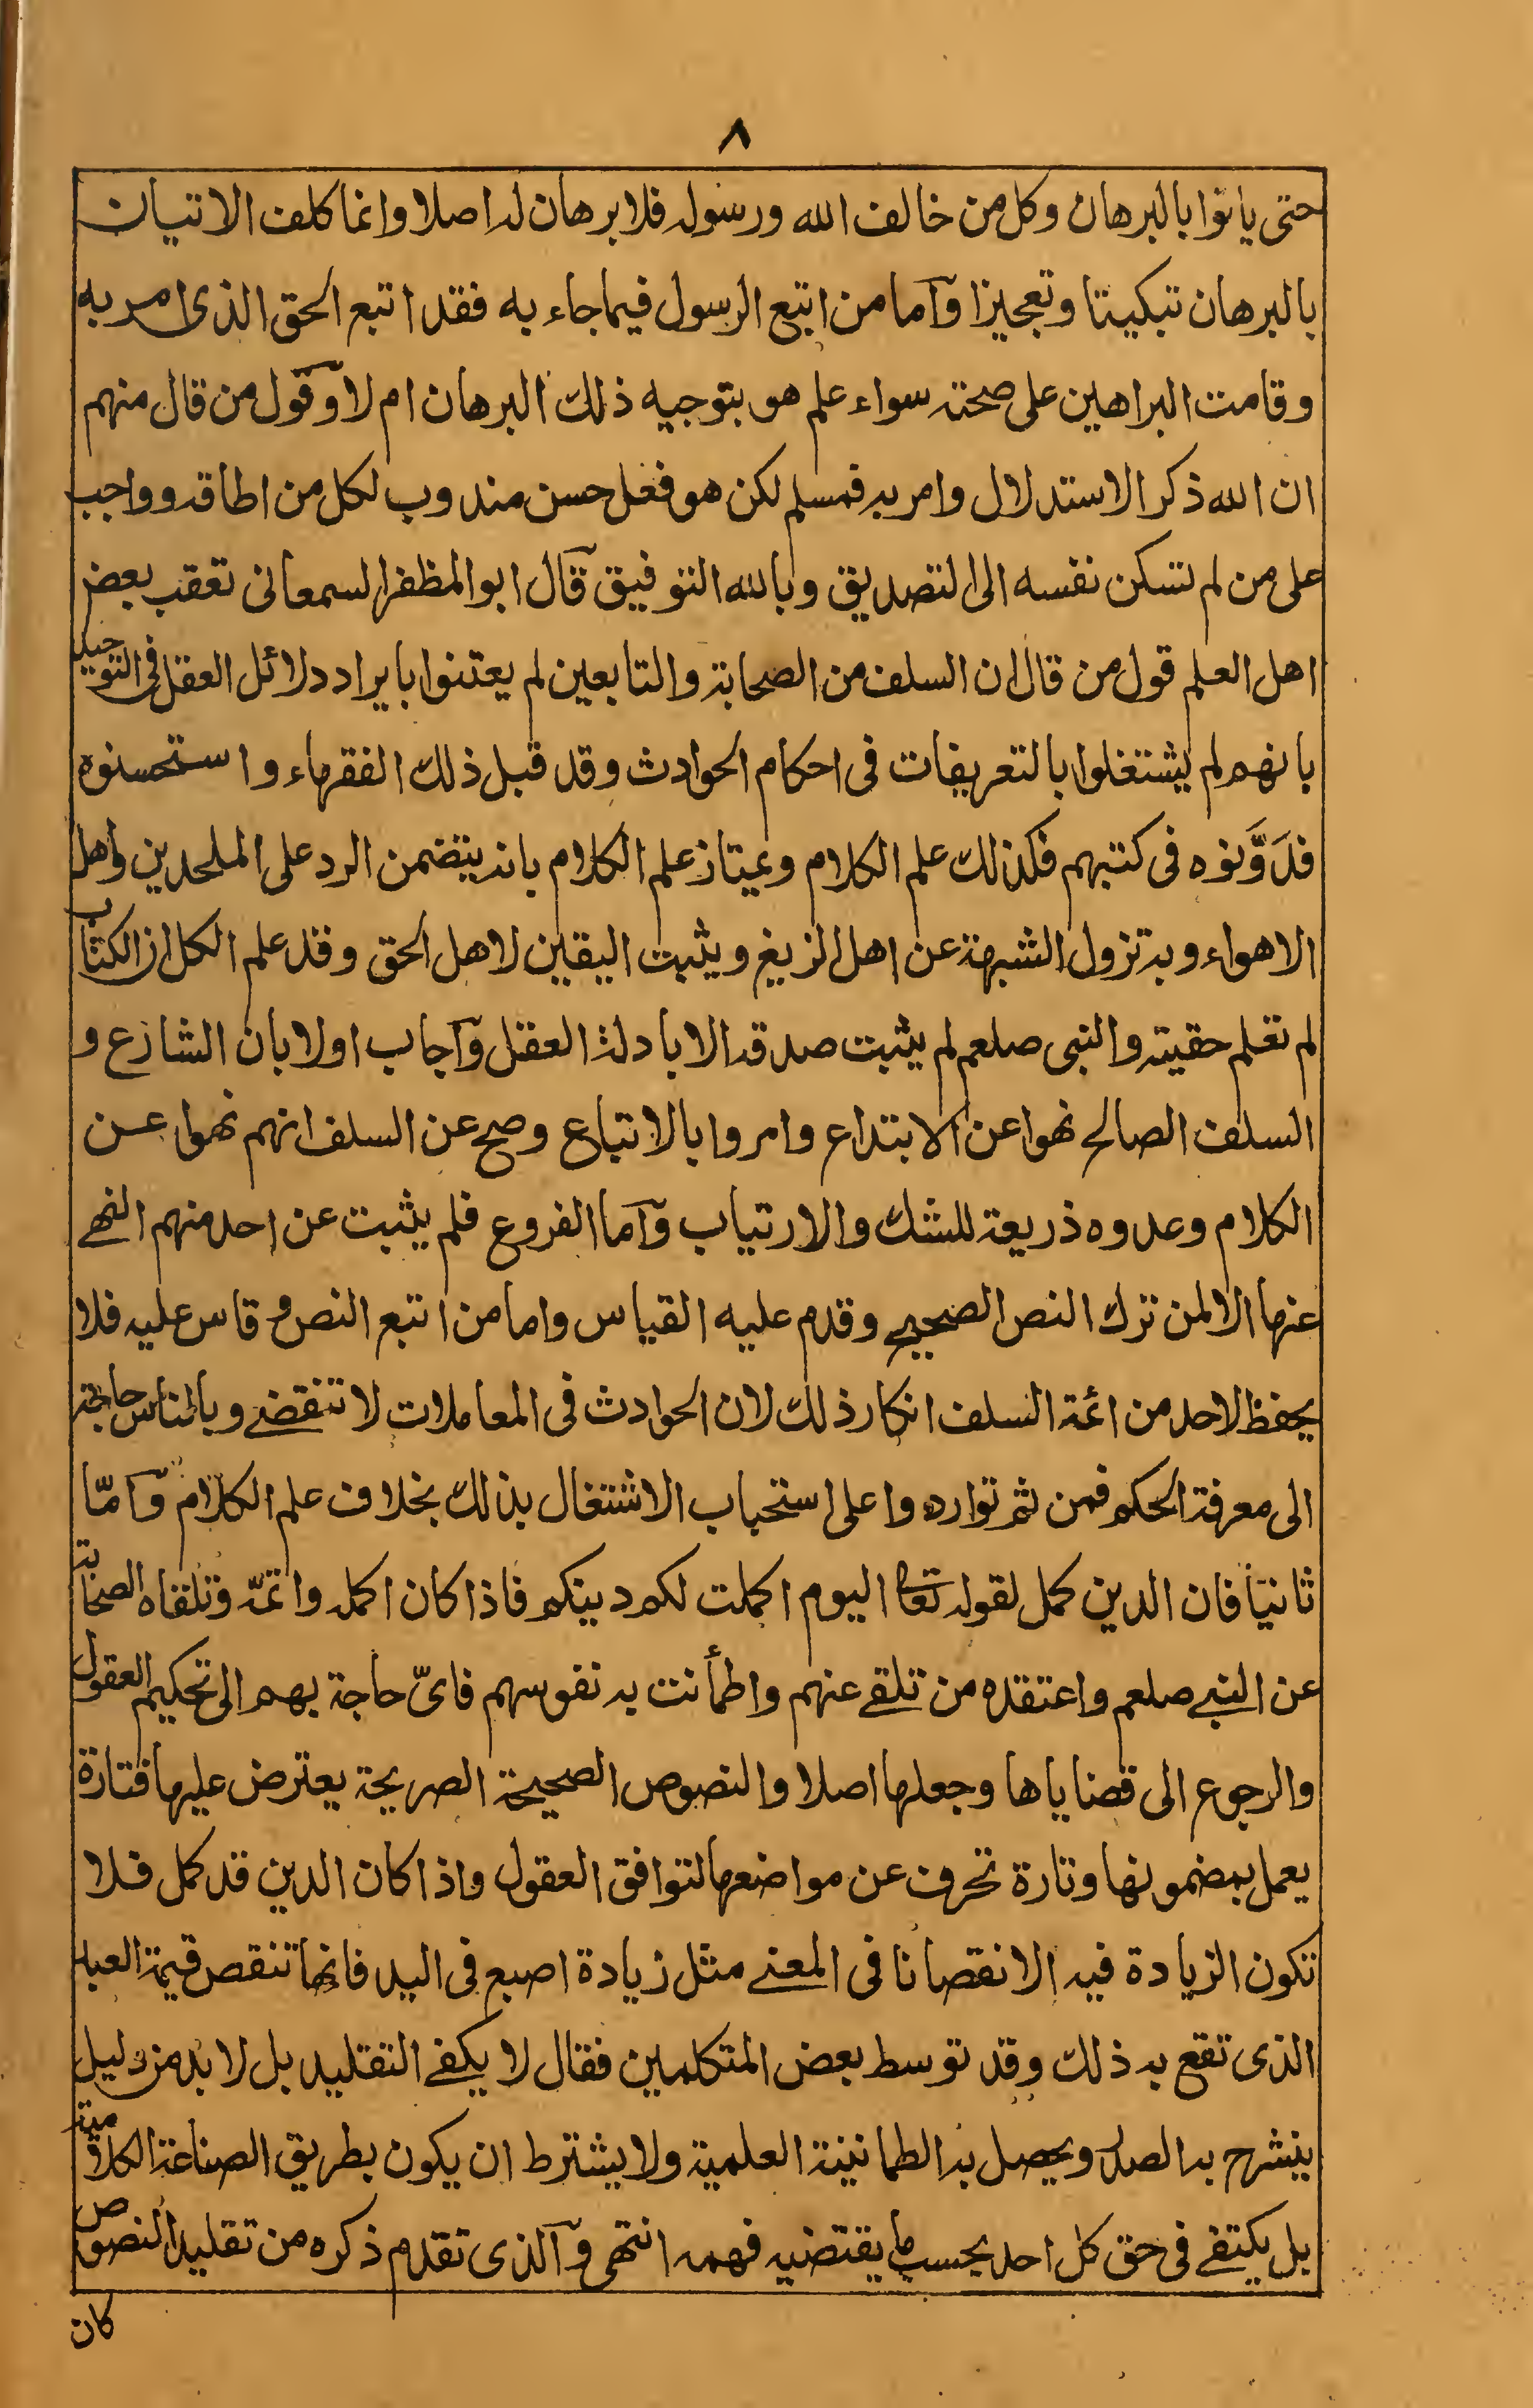 ٨
حتى ياتوا بالبرهان وكل من خالف الله ورسوله فلا برهان له اصلا وانما كلف الاتيان
بالبرهان تبكيتا وتعجيزا وآما من اتبع الرسول فيما جاء به فقد اتبع الحق الذى امر به
وقامت البراهين على صحته سواء علم هو بتوجيه ذلك البرهان ام لا وقول من قال منهم
ان الله ذكر الاستدلال وامر به فمسلم لكن هو فعل حسن مندوب لكل من اطاقه وواجب
على من لم تسكن نفسه الى التصديق وبالله التوفيق قال ابو المظفر السمعانى تعقب بعض
اهل العلم قول من قال ان السلف من الصحابة والتابعين لم يعتنوا بايراد دلائل العقل فى التوحيد
بانهم لم يشتغلوا بالتعريفات فى احكام الحوادث وقد قبل ذلك الفقهاء واستحسنوه
فدَوَّنوه فى كتبهم فكذلك علم الكلام ويمتاز علم الكلام بانه يتضمن الرد على الملحدين واهل
الاهواء وبه تزول الشبهة عن اهل الزيغ ويثبت اليقين لاهل الحق وقد علم الكل ان الكتاب
لم تعلم حقيته والنبى صلعم لم يثبت صدقه الا بادلة العقل وآجاب اولا بان الشارع و
السلف الصالح نهوا عن الابتداع وامروا بالاتباع وصح عن السلف انهم نهوا عن
الكلام وعدوه ذريعة للشك والارتياب وآما الفروع فلم يثبت عن احد منهم النهے
عنها الا لمن ترك النص الصحيح وقدم عليه القياس واما من اتبع النص و قاس عليه فلا
يحفظ لاحد من ائمة السلف انكار ذلك لان الحوادث فى المعاملات لا تنقضے وبالناس حاجة
الى معرفة الحكم فمن ثم تواردوا على استحباب الاشتغال بذلك بخلاف علم الكلام وآمّا
ثانيًا فان الدين كمل لقوله تعا اليوم اكملت لكم دينكم فاذا كان اكمله واتمّه وتلقاه الصحابة
عن النبے صلعم واعتقده من تلقے عنهم واطمأنت به نفوسهم فاىّ حاجة بهم الى تحكيم العقول
والرجوع الى قضاياها وجعلها اصلا والنصوص الصحيحة الصريحة يعترض عليها فتارة
يعمل بمضمونها وتارة تحرف عن مواضعها لتوافق العقول واذا كان الدين قد كمل فلا
تكون الزيادة فيه الا نقصانا فى المعنے مثل زيادة اصبع فى اليد فانها تنقص قيمة العبد
الذى تقع به ذلك وقد توسط بعض المتكلمين فقال لا يكفے التقليد بل لا بد من دليل
ينشرح به الصدر ويحصل به الطمانينة العلمية ولا يشترط ان يكون بطريق الصناعة الكلامية
بل يكتفے فى حق كل احد بحسب ما يقتضيه فهمه انتهى وآلذى تقدم ذكره من تقليد النصوص
كان